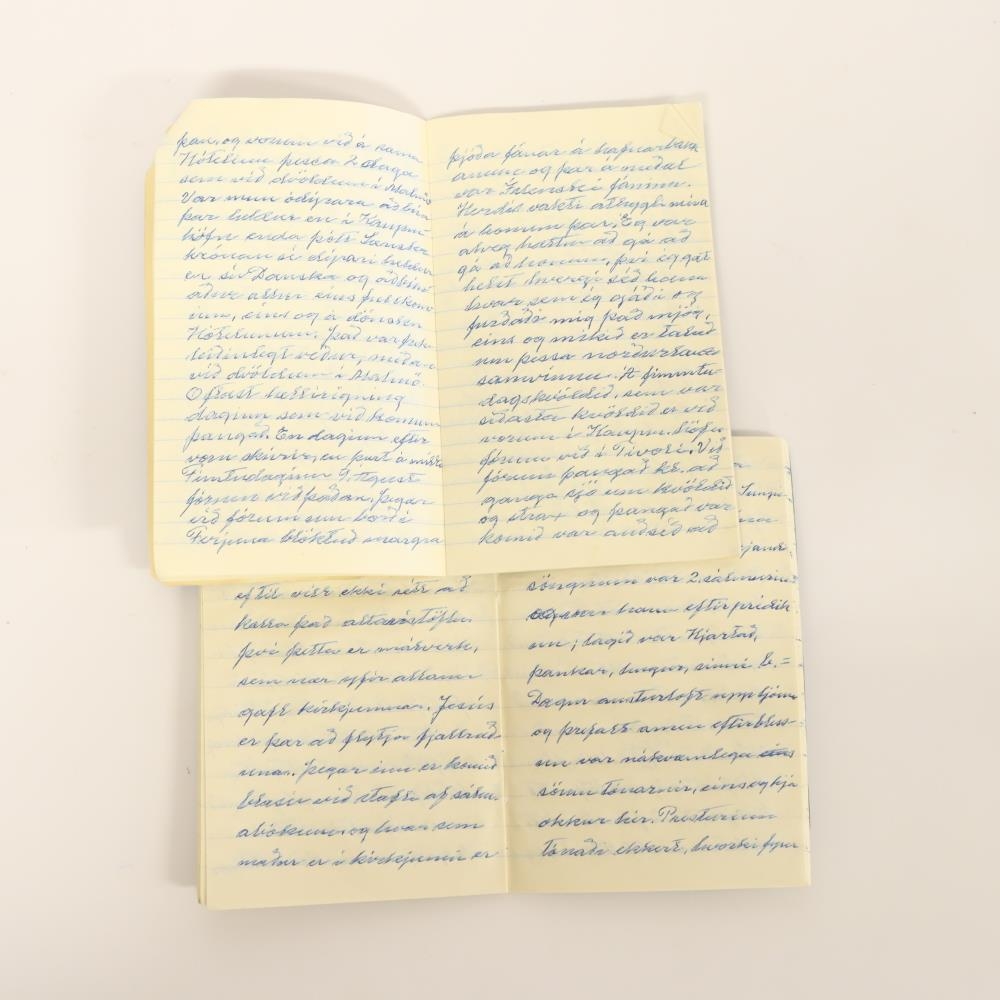 þar, og vorum við á sama
Hótelinu þessa 2 daga
sem við dvöldum í Malmö
Var mun ódýrara að búa
þar heldur en í Kaupm-
höfn enda þótt Sænska
krónan sé dýrari heldur
er sú Danska og aðbún-
aður allur eins fullkom-
inn, eins og á dönsku
Hótelunum. Það var frek
leiðinlegt veður, meðan
við dvöldum í Malmö.
Ofsast hellirigning
daginn sem við komum
þangað. En daginn eftir
voru skúrir, en þurt á milli
Fimtudaginn 9. Ágúst
fórum við þaðan. Þegar
við fórum um borð í
Ferjuna blöktuð margra
þjóða fánar á hafnarbakk
anum og þar á meðal
var Íslenski fáninn.
Herdís vakti athygli mína
á honum þar. Ég var
alveg hættur að gá að
gá að honum, því ég gat
helst hvergi séð hann
hvar sem ég gáði og
furðaði mig það mjög,
eins og mikið er talað
um þessa norðurlanda
samvinnu. Á fimmtu-
dagskvöldið, sem var
síðasta kvöldið er við
vorum í Kaupm. Höfn
fórum við í Tivoli. Við
fórum þangað kl. að
ganga sjö um kvöldið
og strax og þangað var
komið var auðséð að
eftir vill ekki rétt að
kalla það altaristöflu
því þetta er málverk,
sem nær yfir allann
gafl kirkjunnar. Jesús
er þar að flytja fjallræð-
una. Þegar inn er komið
blasir við stafli af sálm-
abókum, og hvar sem
maður er í kirkjunni er
söngnum var 2. sálmurinn
sem hann eftir prédik
un; lagið var Hjartað,
þankar, hugur, sinni &.=
Dagur austurloft upp ljóma
og prísast amen eftir bless-
un var nákvæmlega eins
sömu tónarnir, eins og hjá
okkur hér. Presturinn
tónaði ekkert, hvorki fyrir